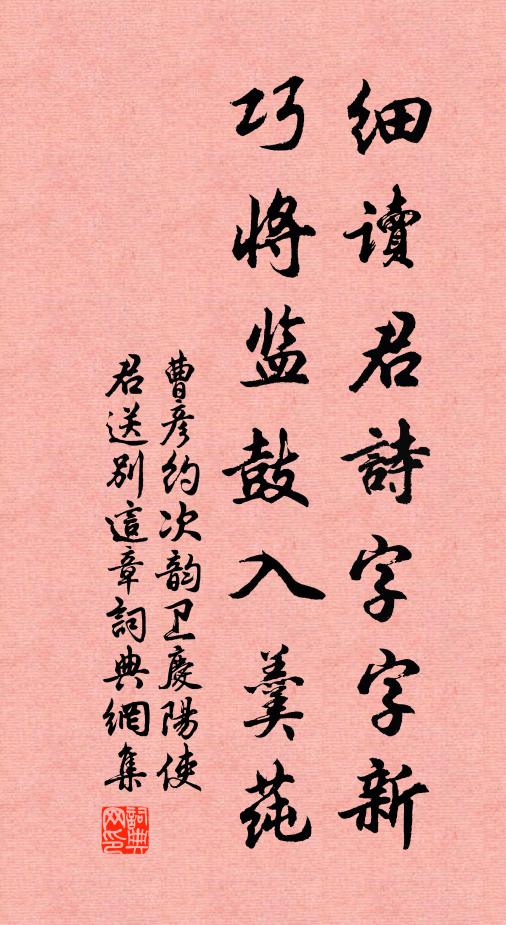 细讀君詩字字新
巧將监鼓入羹莼
曹彦约次韵卫慶陽使
君送别這章詞典網集
詞典网印